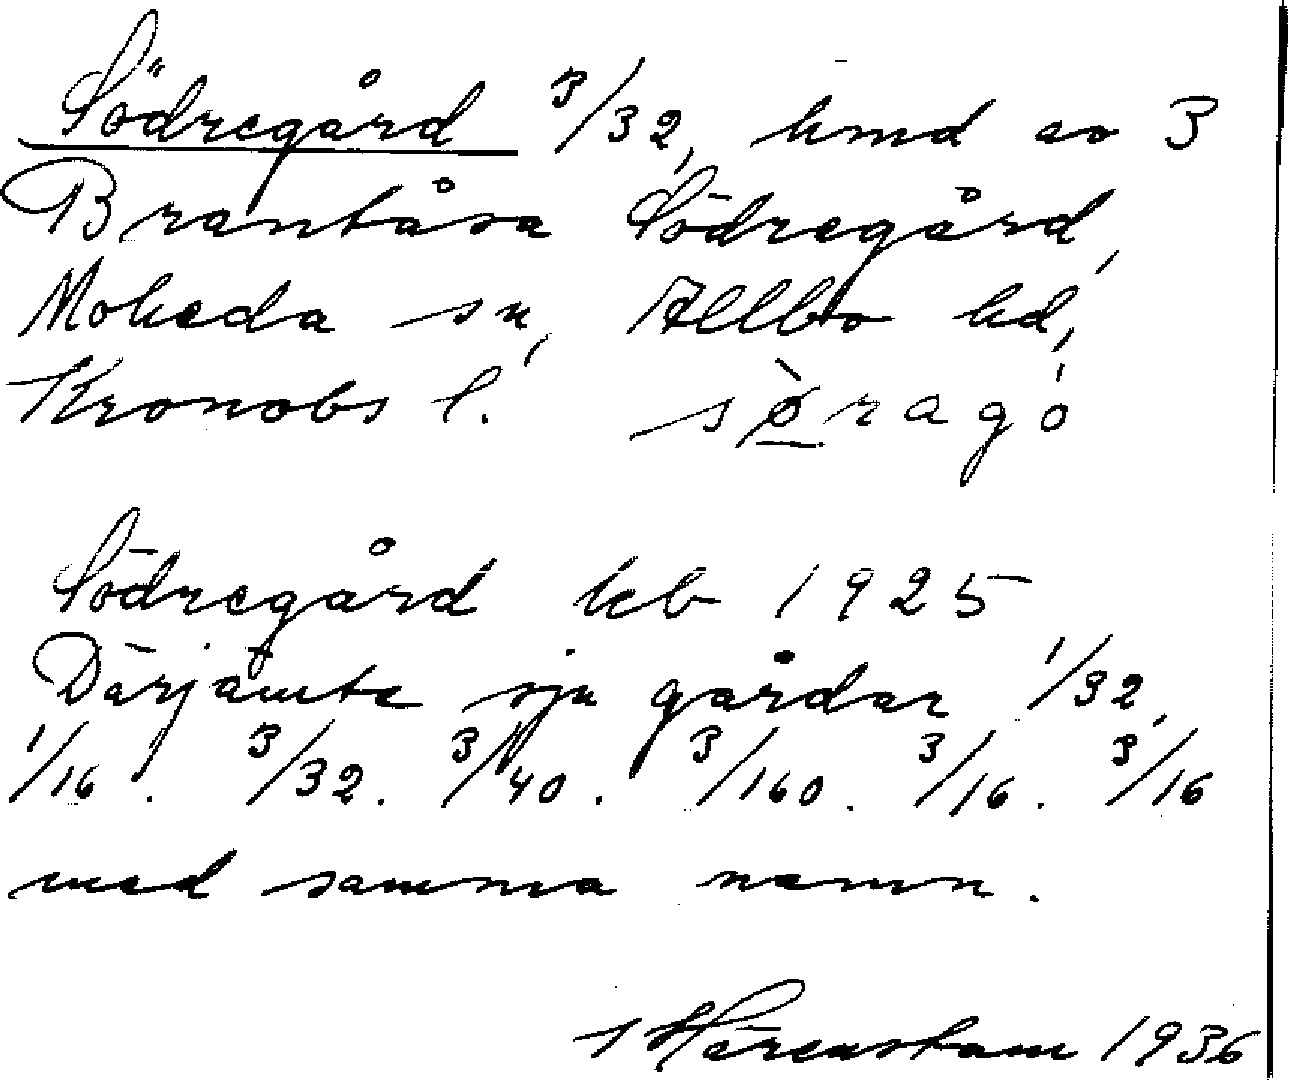 Södregård 3/32, hmd av 3
Brantåsa Södregård,
Moheda sn, Allbo hd,
Kronobs l. sø̀ragó
Södregård lcb 1925
Därjämte sju gårdar 1/32,
1/16. 3/32. 3/40. 3/160. 3/16. 3/16
med samma namn.
Härenstam 1936